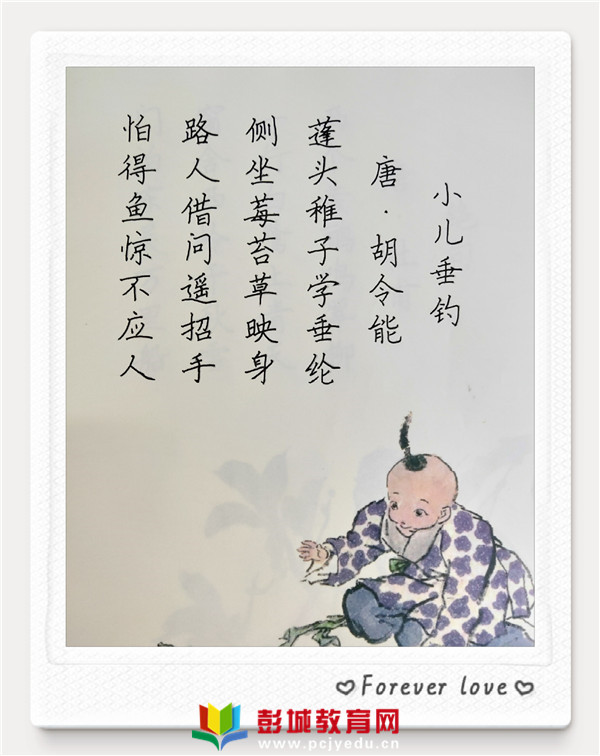 小儿垂钓
唐·胡令能
蓬头稚子学垂纶
侧坐莓苔草映身
路人借问遥招手
怕得鱼惊不应人
Forever love
彭城教育网
www.pcjyedu.cn